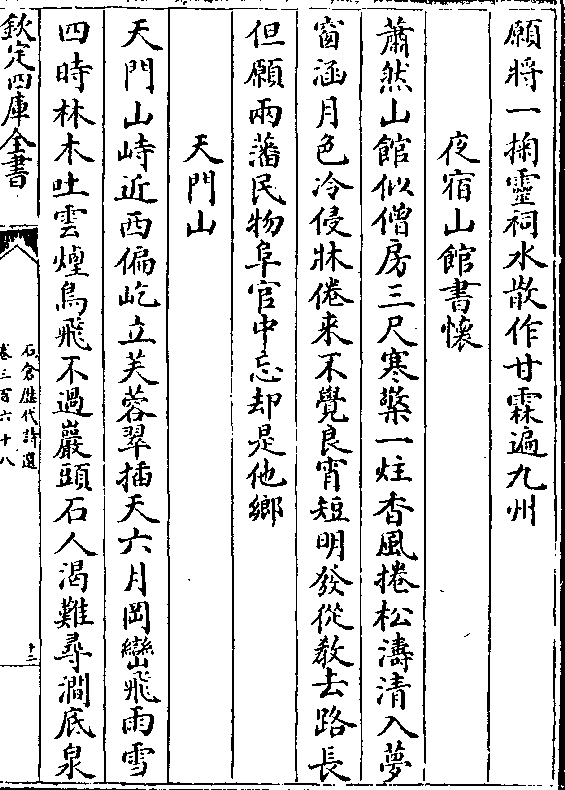 願將一掬靈祠水散作甘霖遍九州
夜宿山館書懷
蕭然山館似僧房三尺寒檠一炷香風捲松濤清入夢
窗涵月色冷侵牀倦来不覺良宵短明發從教去路長
但願兩藩民物阜官中忘却是他鄉
天門山
天門山峙近西偏屹立芙蓉翠插天六月岡巒飛雨雪
四時林木吐雲煙鳥飛不過巖頭石人渴難尋澗底泉
欽定四庫全書
石倉歷代詩選
卷三百六十八
十二